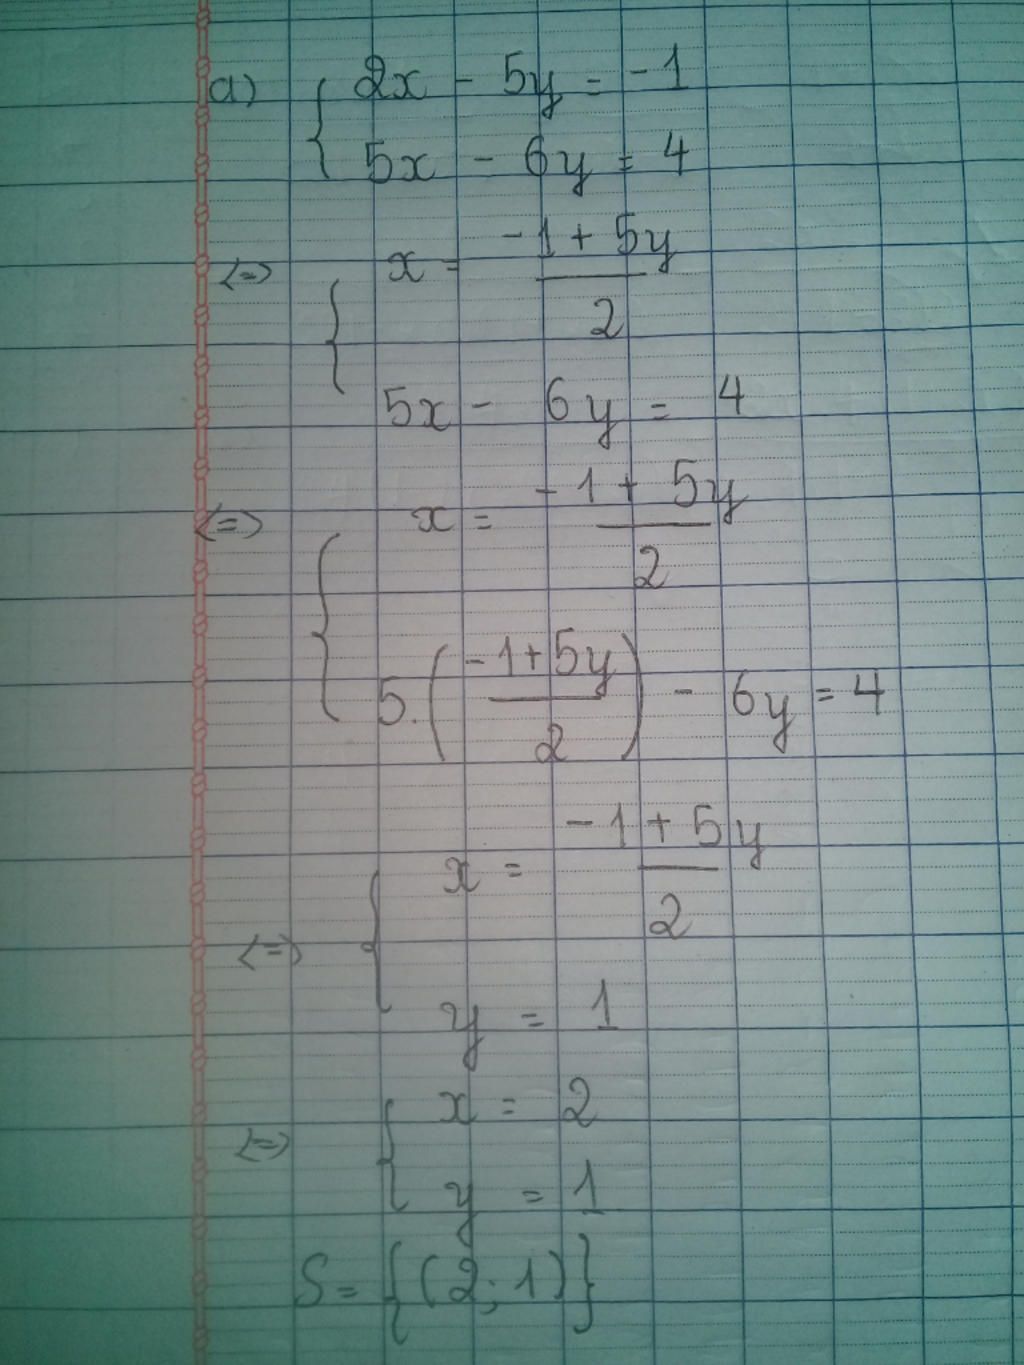 a) { 2x - 5y = -1
5x - 6y = 4
<=> { x = -1 + 5y
2
5x - 6y = 4
<=> { x = -1 + 5y
2
5.(-1+5y) - 6y = 4
2
<=> { x = -1 + 5y
2
y = 1
<=> { x = 2
y = 1
S = {(2; 1)}